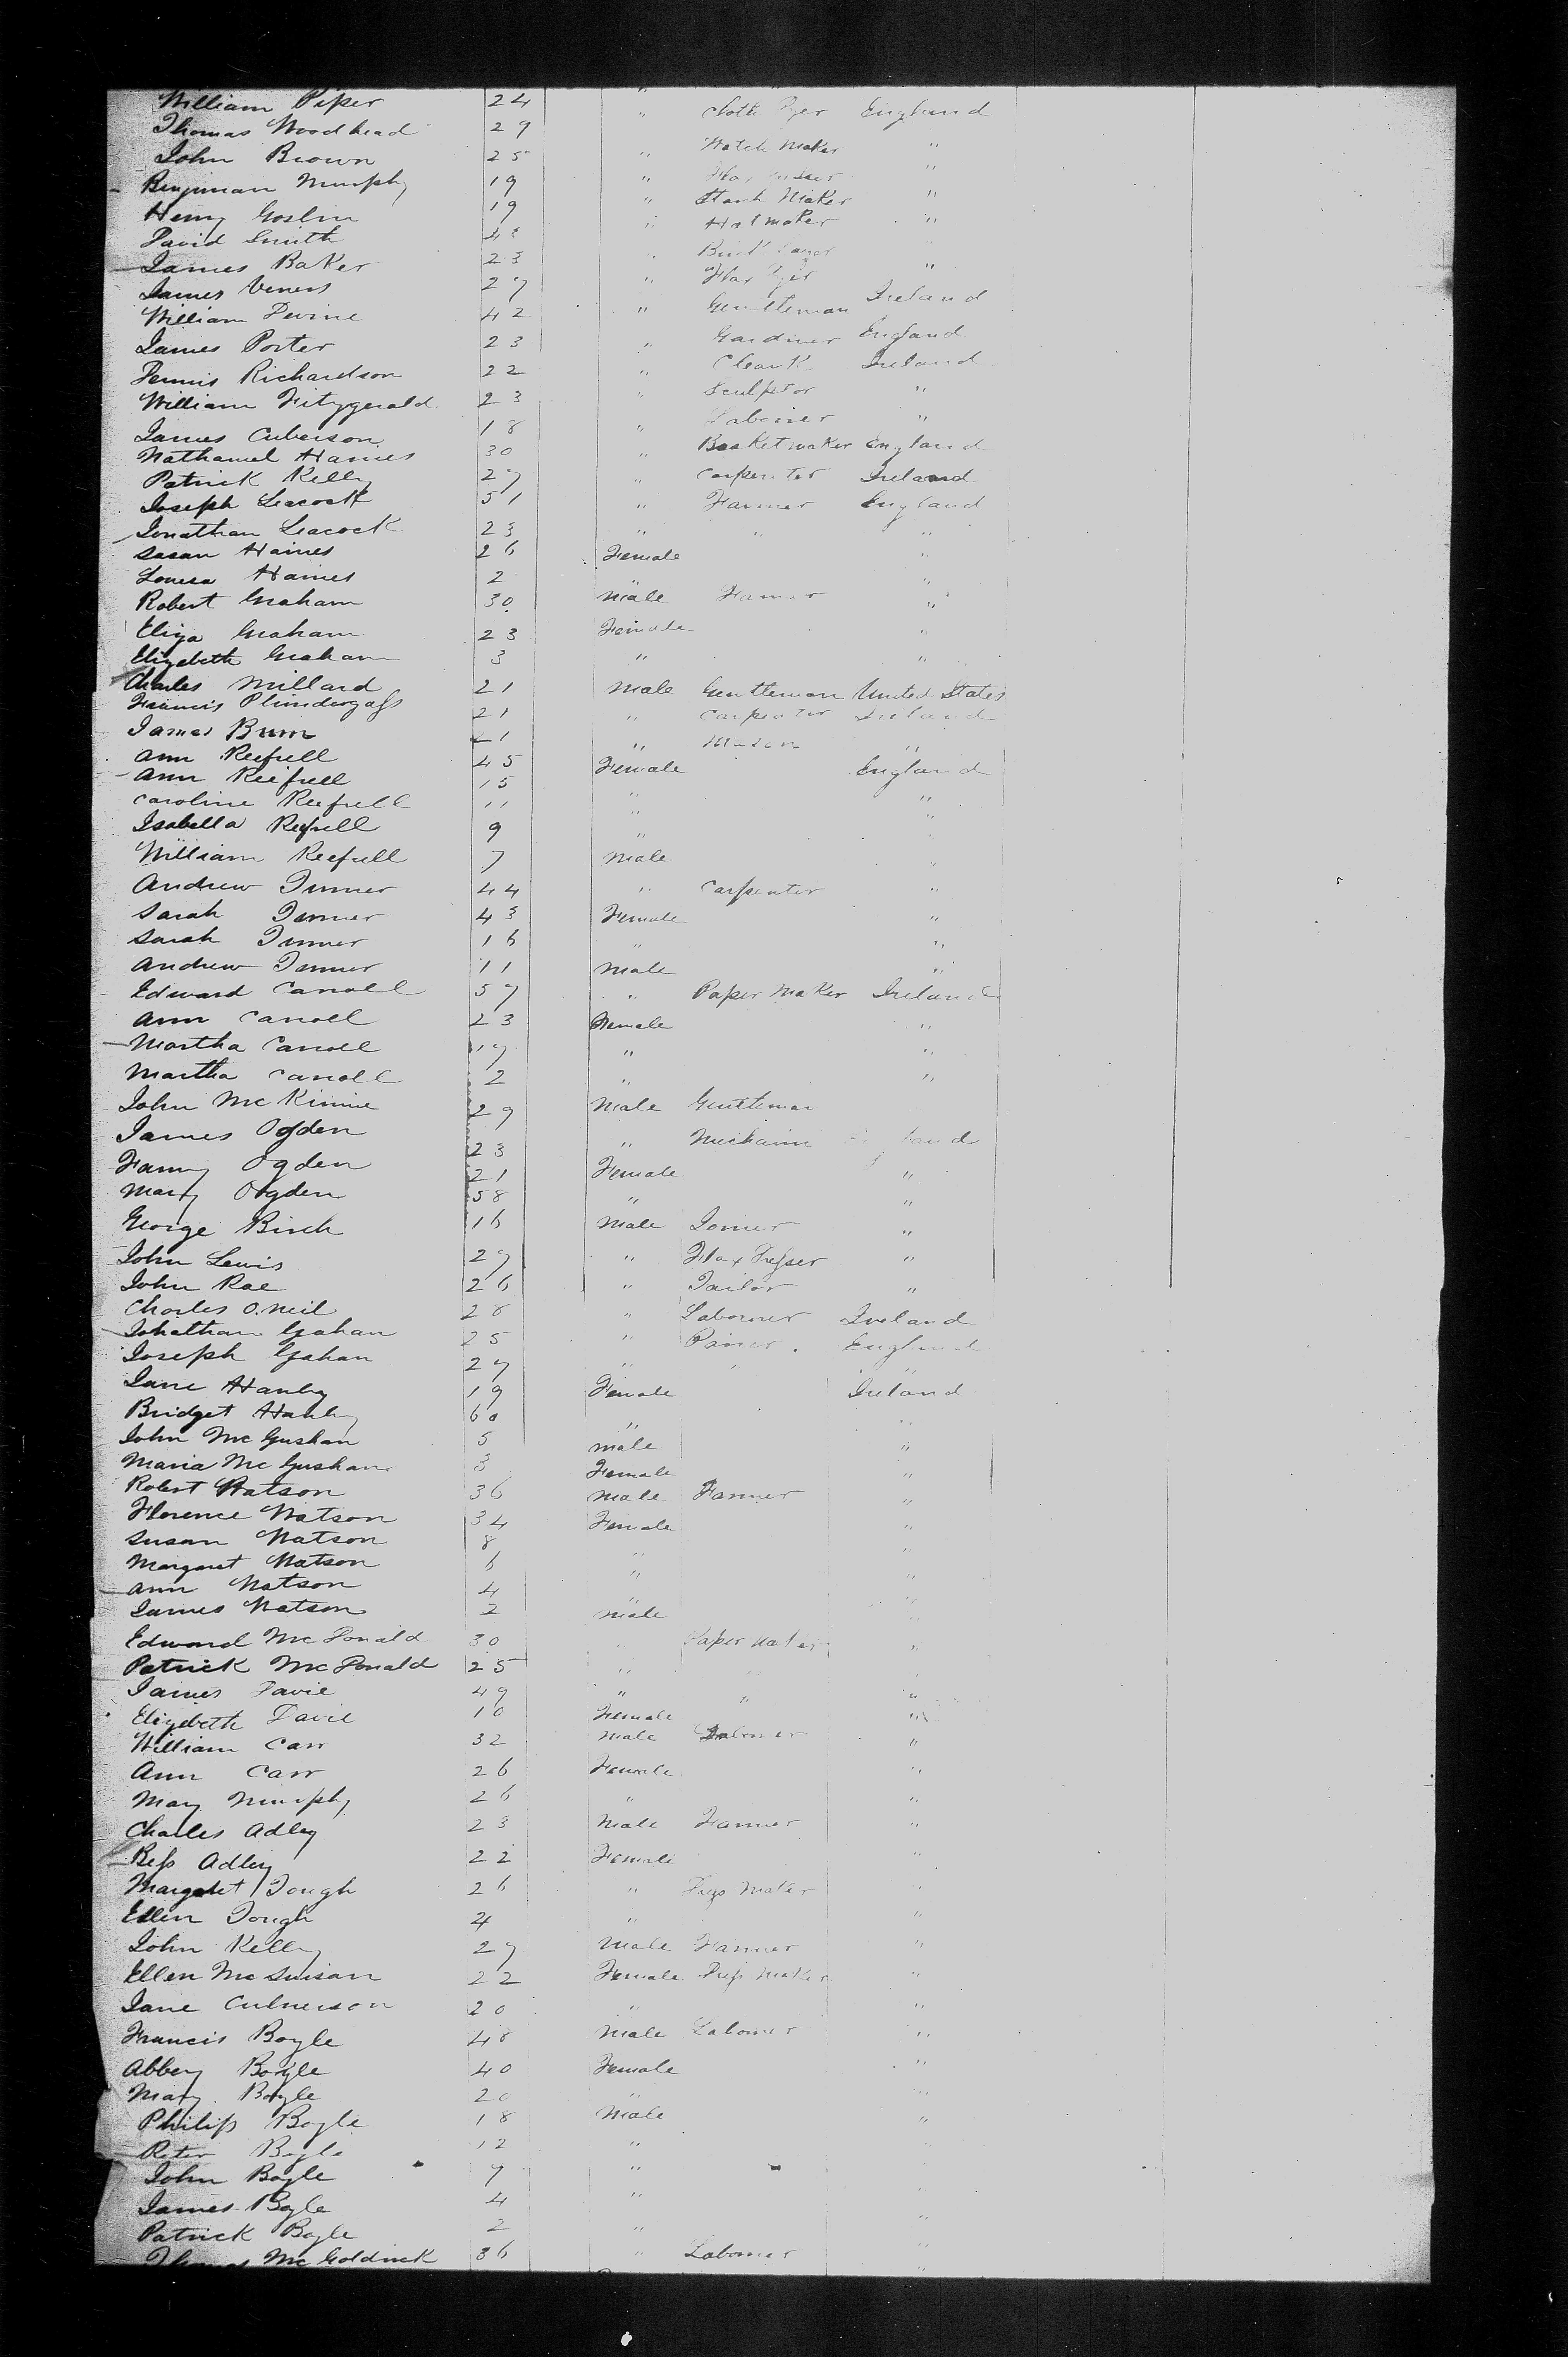 William Piper 24 " Cloth Dyer England
Thomas Woodhead 29 " Watch Maker "
John Brown 25 " Flax "
Benjiman Murphy 19 " Starch Maker "
Henry Goslin 19 " Hat maker "
David Smith 43 "
James Baker 23 " Flax "
James Veners 27 " Gentleman Ireland
William Devine 42 " Gardiner England
James Porter 23 " Cleark Ireland
Dennis Richardson 22 " Sculptor "
William Fitzgerald 23 " Labourer "
James Cuberson 18 " Basketmaker England
Nathaniel Haines 30 " Carpenter Ireland
Patrick Kelly 27 " Farmer England
Joseph Leacock 51 " " "
Jonathan Leacock 23
Susan Haines 26 Female "
Louesa Haines 2 " "
Robert Graham 30 Male Farmer "
Eliza Graham 23 Female "
Elizabeth Graham 3 " "
Charles Millard 21 Male Gentleman United States
Francis Plundergass 21 " Carpenter Ireland
James Burn 21 " Mason "
Ann Reefrell 45 Female England
Ann Reefrell 15 " "
Caroline Reefrell 11 " "
Isabella Reefrell 9 "
William Reefrell 7 Male "
Andrew Turner 44 " Carpenter "
Sarah Turner 43 Female "
Sarah Turner 16 " "
Andrew Turner 11 Male "
Edward Carroll 57 " Paper Maker Ireland
Ann Carroll 23 Female "
Martha Carroll 17 " "
Martha Carroll 2 " "
John McKinnie 29 Male Gentleman
James Ogden 23 "
Fanny Ogden 21 Female "
Mary Ogden 58 " "
George Birch 16 Male Joiner "
John Lewis 27 " Flax Dresser "
John Rae 26 " Tailor "
Charles O.Neil 28 " Labourer Ireland
Johathan Gahan 25 " England
Joseph Gahan 27 " " "
Jane Hanly 19 Female Ireland
Bridget Hanly 60 " "
John McGushan 5 Male "
Maria McGushan 3 Female "
Robert Watson 36 Male Farmer "
Florence Watson 34 Female "
Susan Watson 8 "
Margaret Watson 6 " "
Ann Watson 4 " "
James Watson 2 Male
Edward McDonald 30 " Paper Maker "
Patrick McDonald 25 " " "
James Davie 49 " " "
Elizebeth Davie 10 Female "
William Carr 32 Male Labourer "
Ann Carr 26 Female "
Mary Murphy 26 " "
Charles Adley 23 Male Farmer "
Bess Adley 22 Female "
Margaret Tough 26 " Dress Maker "
Ellen Tough 4 " "
John Kelly 27 Male Farmer "
Ellen McSwisan 22 Female Dress Maker "
Jane Culnerson 20 " "
Francis Boyle 48 Male Labourer "
Abbey Boyle 40 Female "
Mary Boyle 20 " "
Philip Boyle 18 Male "
Peter Boyle 12 "
John Boyle 7 "
James Boyle 4 "
Patrick Boyle 2 " "
Thomas McGoldrick 36 " Labourer "